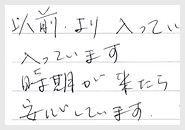 以前.より 入ってい
入っています
時期が来たら
安心しています.